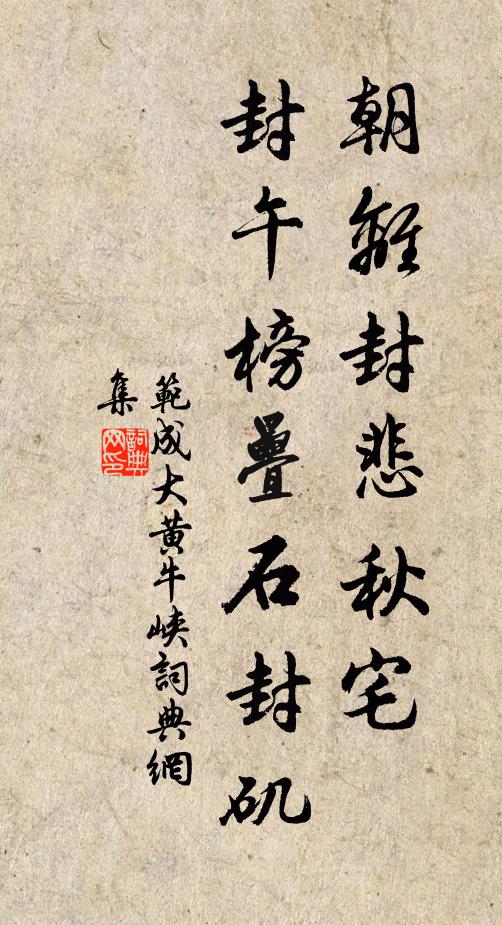 朝離封悲秋宅
封午榜疊石封矶
範成大黃牛峽詞典網
集
詞典网印